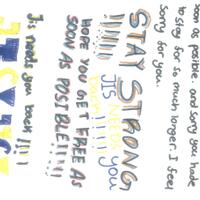 soon as possible. and sorry you hade
to stay for so much longer. I feel
sorry for you.
STAY STRONG
!!!!!!
you
HOPE YOU GET FREE AS
SOON AS POSIBLE!!!!!
need you back!!!!